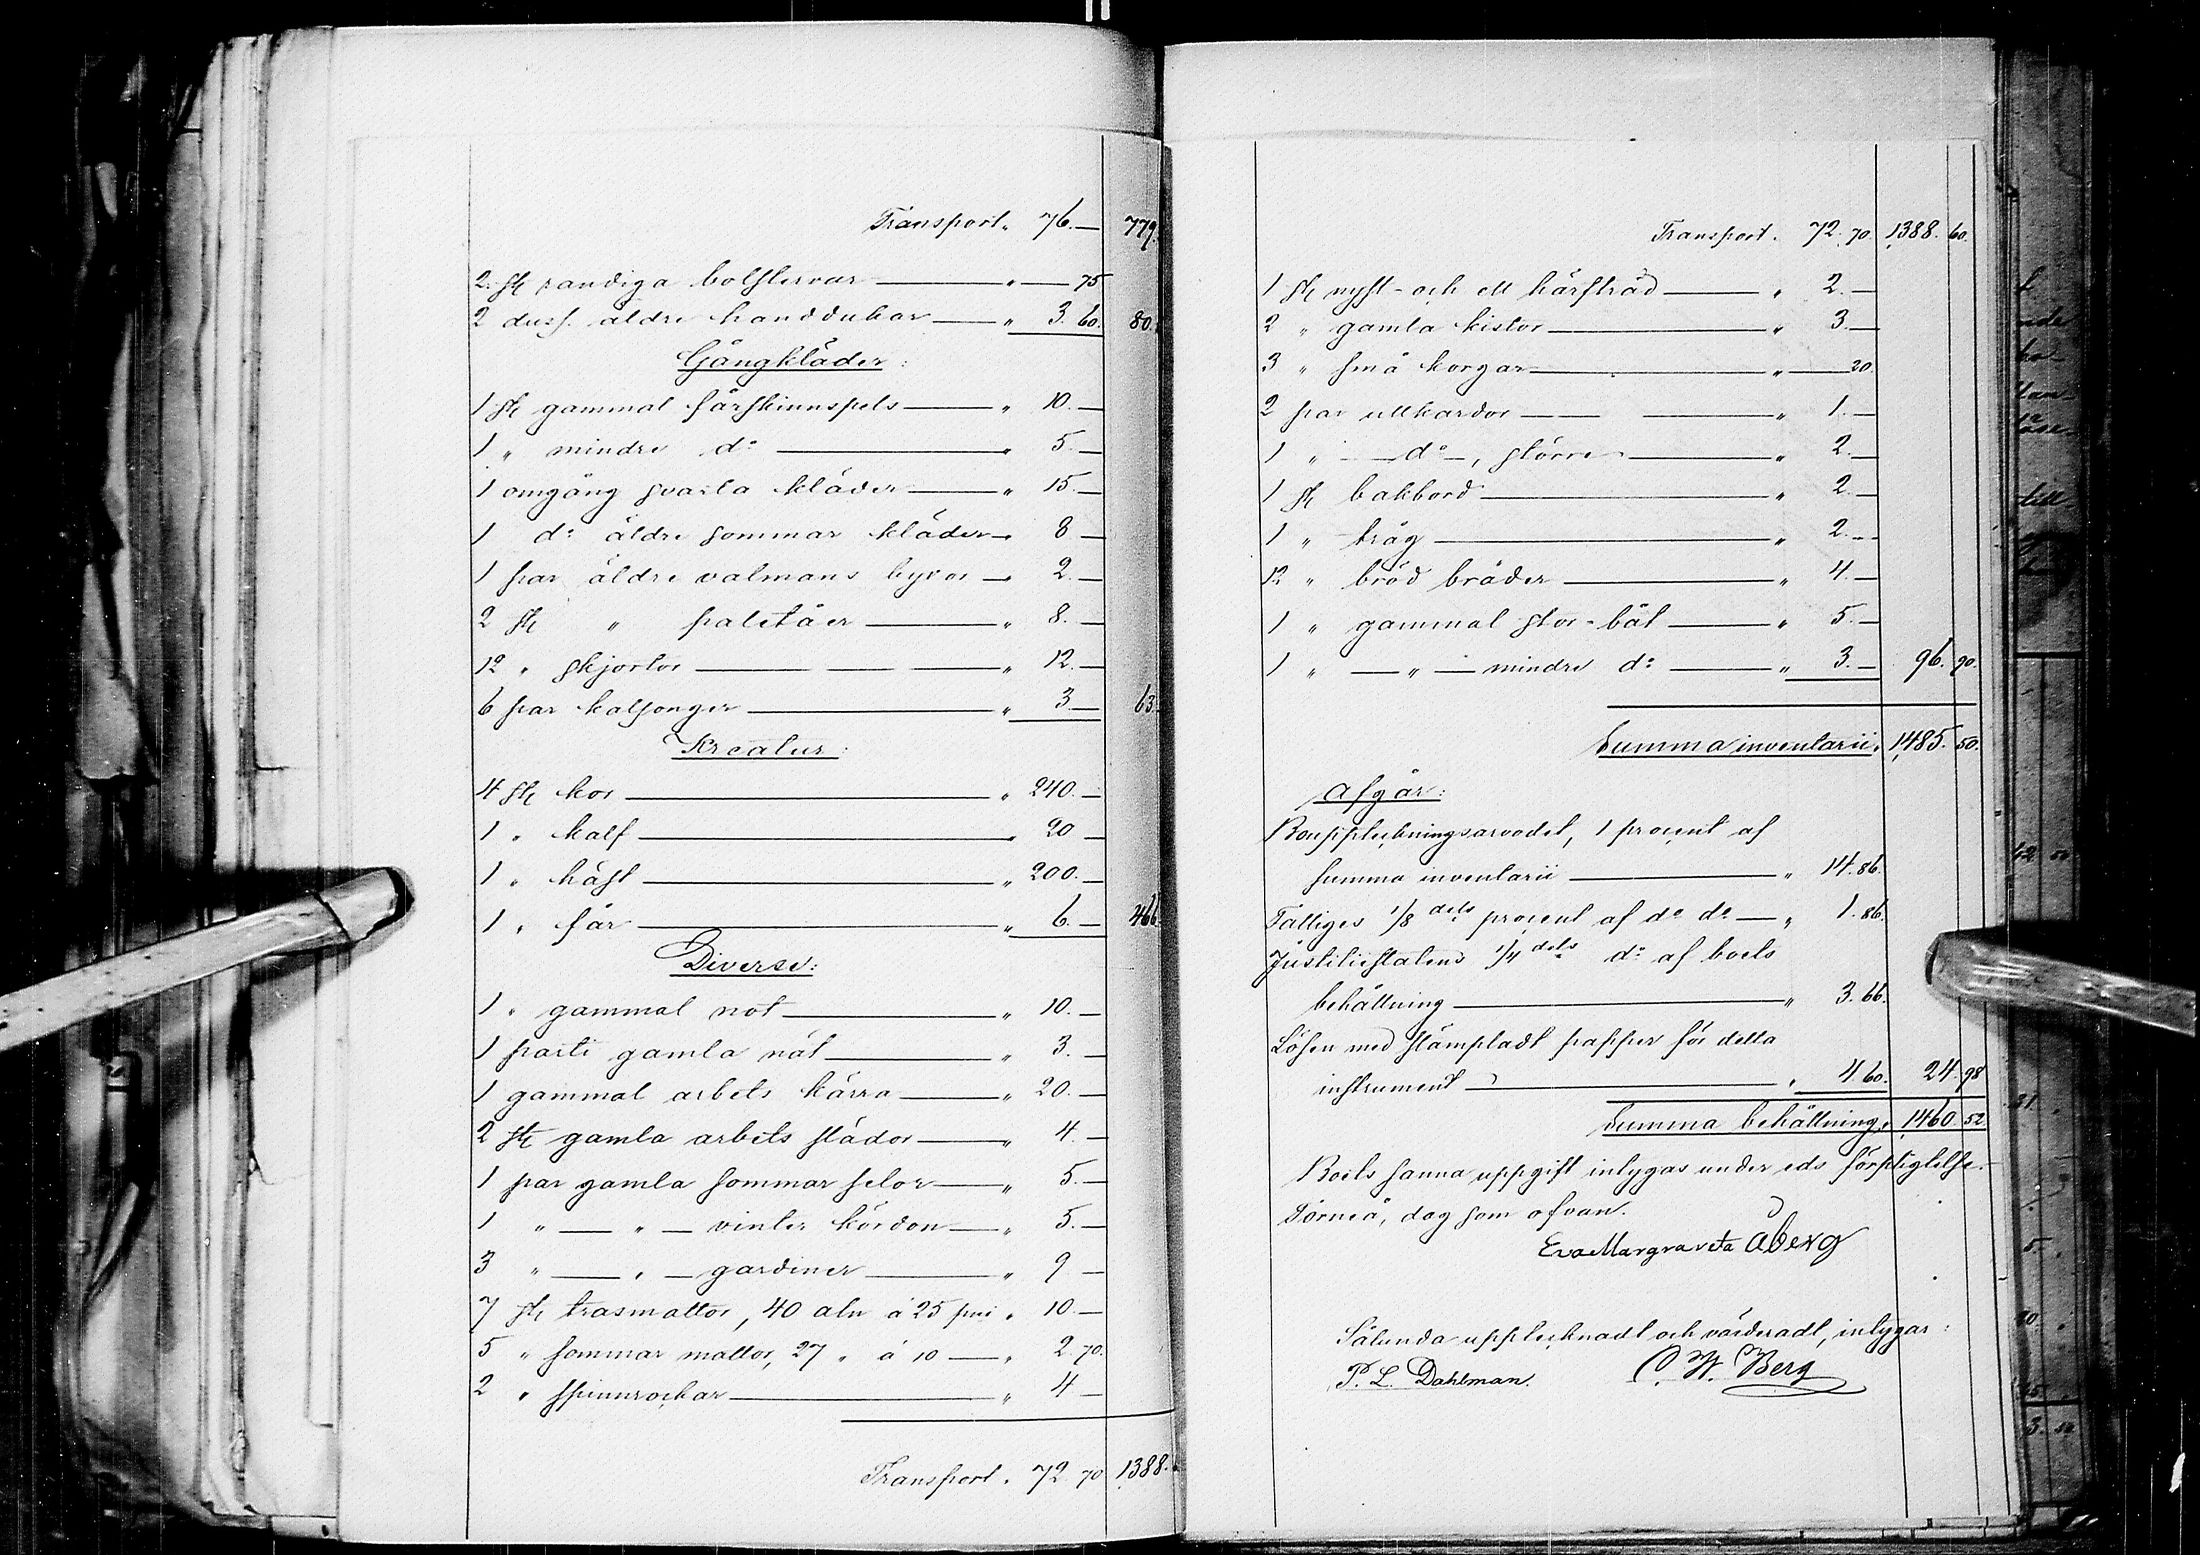 Transport " 76.— 779.
2 st randiga bolstervar — " — 75
2 duss. äldre handdukar — " 3. 60. 80.
Gångkläder:
1 st gammal fårskinnspels — " 10.—
1 " mindre d:o — " 5.—
1 omgång svarta kläder — " 15.—
1 d:o äldre sommar kläder — " 8 —
1 par äldre valmans byxor — " 2.—
2 st " paletåer — " 8.—
12 " skjortor — " 12.—
6 par kalsonger — " 3.— 63.
Kreatur:
4 st kor — " 240.—
1 " kalf — " 20 —
1 " häst — " 200.—
1 " får — " 6.— 466
Diverse:
1 " gammal not — " 10.—
1 parti gamla nät — " 3.—
1 gammal arbets kärra — " 20.—
2 st gamla arbets slädor — " 4.—
1 par gamla sommar selor — " 5.—
1 " — " — vinter kördon — " 5.—
3 " — " — gardiner — " 9 —
7 st trasmattor, 40 aln á 25 pni " 10.—
5 " sommar mattor, 27 " á 10 — " 2 70.
2 " spinnrockar — " 4 —
Transport " 72. 70 1,388.
Transport " 72. 70. 1,388. 60.
1 st nyst- och ett härfträd — " 2.—
2 " gamla kistor — " 3.—
3 " små korgar — " — 20.
2 par ullkardor — " 1.—
1 " — d:o —, större — " 2.—
1 st bakbord — " 2.—
1 " tråg — " 2.—
12 " bröd bräder — " 4.—
1 " gammal stor-båt — " 5.—
1 " — " — mindre d:o — " 3.— 96. 90.
Summa inventarii " 1,485. 50.
Afgår:
Bouppteckningsarvodet, 1 procent af
summa inventarii — " 14. 86.
Fattiges 1/8 dels procent af d:o d:o — " 1. 86.
Justitiestatens 1/4 dels d:o af boets
behållning — " 3. 66.
Lösen med stämpladt papper för detta
instrument — " 4. 60. 24. 98
Summa behållning " 1,460. 52.
Boets sanna uppgift intygas under eds förpligtelse.
Torneå, dag som ofvan.
Eva Margrareta Åberg
Sålunda upptecknadt och värderadt, intygar:
P. L. Dahlman. C. W. Berg